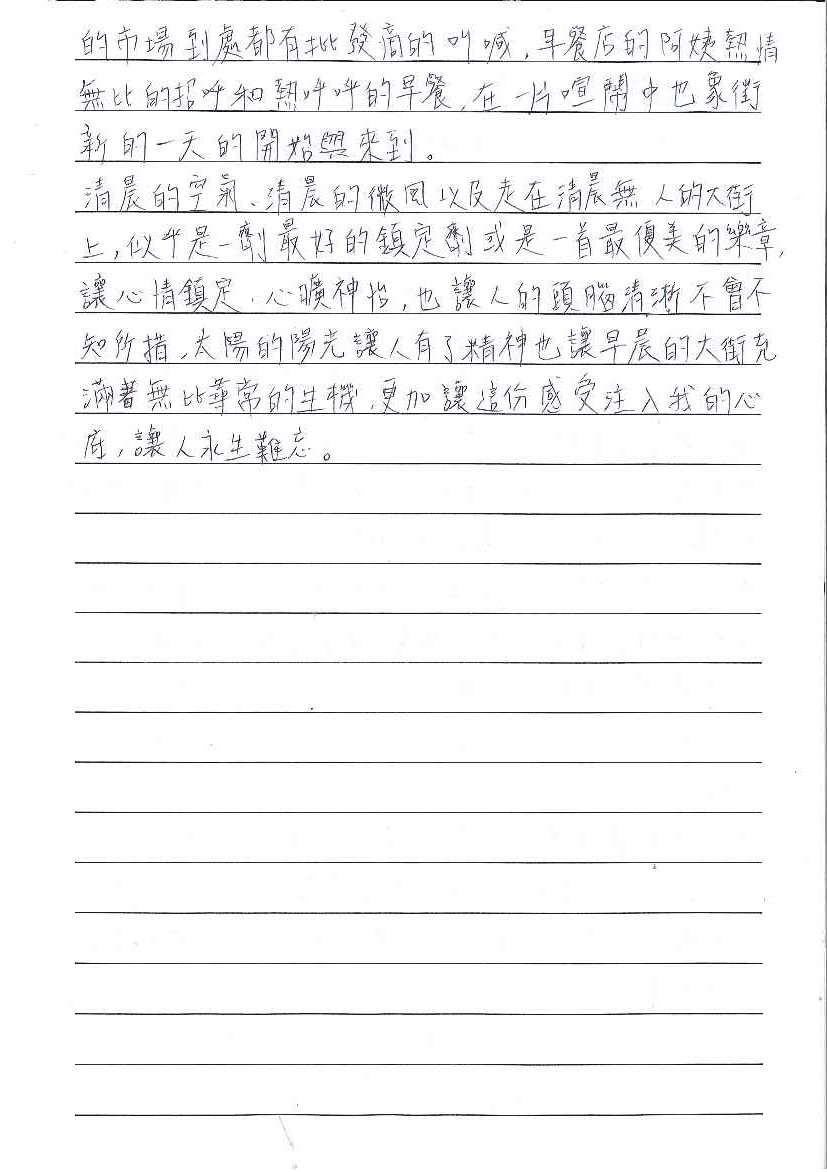 的市場到處都有批發商的叫喊，早餐店的阿姨熱情
無比的招呼和熱呼呼的早餐，在一片喧鬧中也象徵
新的一天的開始與來到。
清晨的空氣、清晨的微風以及走在清晨無人的大街
上，似乎是一劑最好的鎮定劑或是一首最優美的樂章，
讓心情鎮定、心曠神怡，也讓人的頭腦清晰不會不
知所措，太陽的陽光讓人有了精神也讓早晨的大街充
滿著無比華常的生機，更加讓這份感受注入我的心
底，讓人永生難忘。